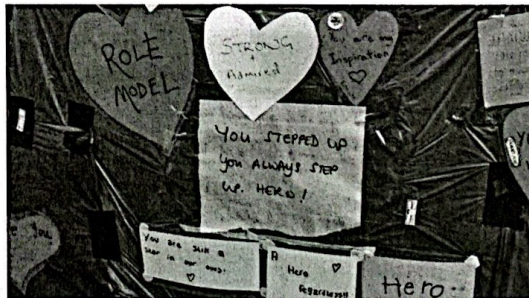 ROLE
MODEL
STRONG
Admired
You are my
Inspiration
♡
YOU STEPPED UP
YOU ALWAYS STEP
UP. HERO!
You are still a
star in our eyes!
♡
A
Hero ♡
Regardless!!
Hero